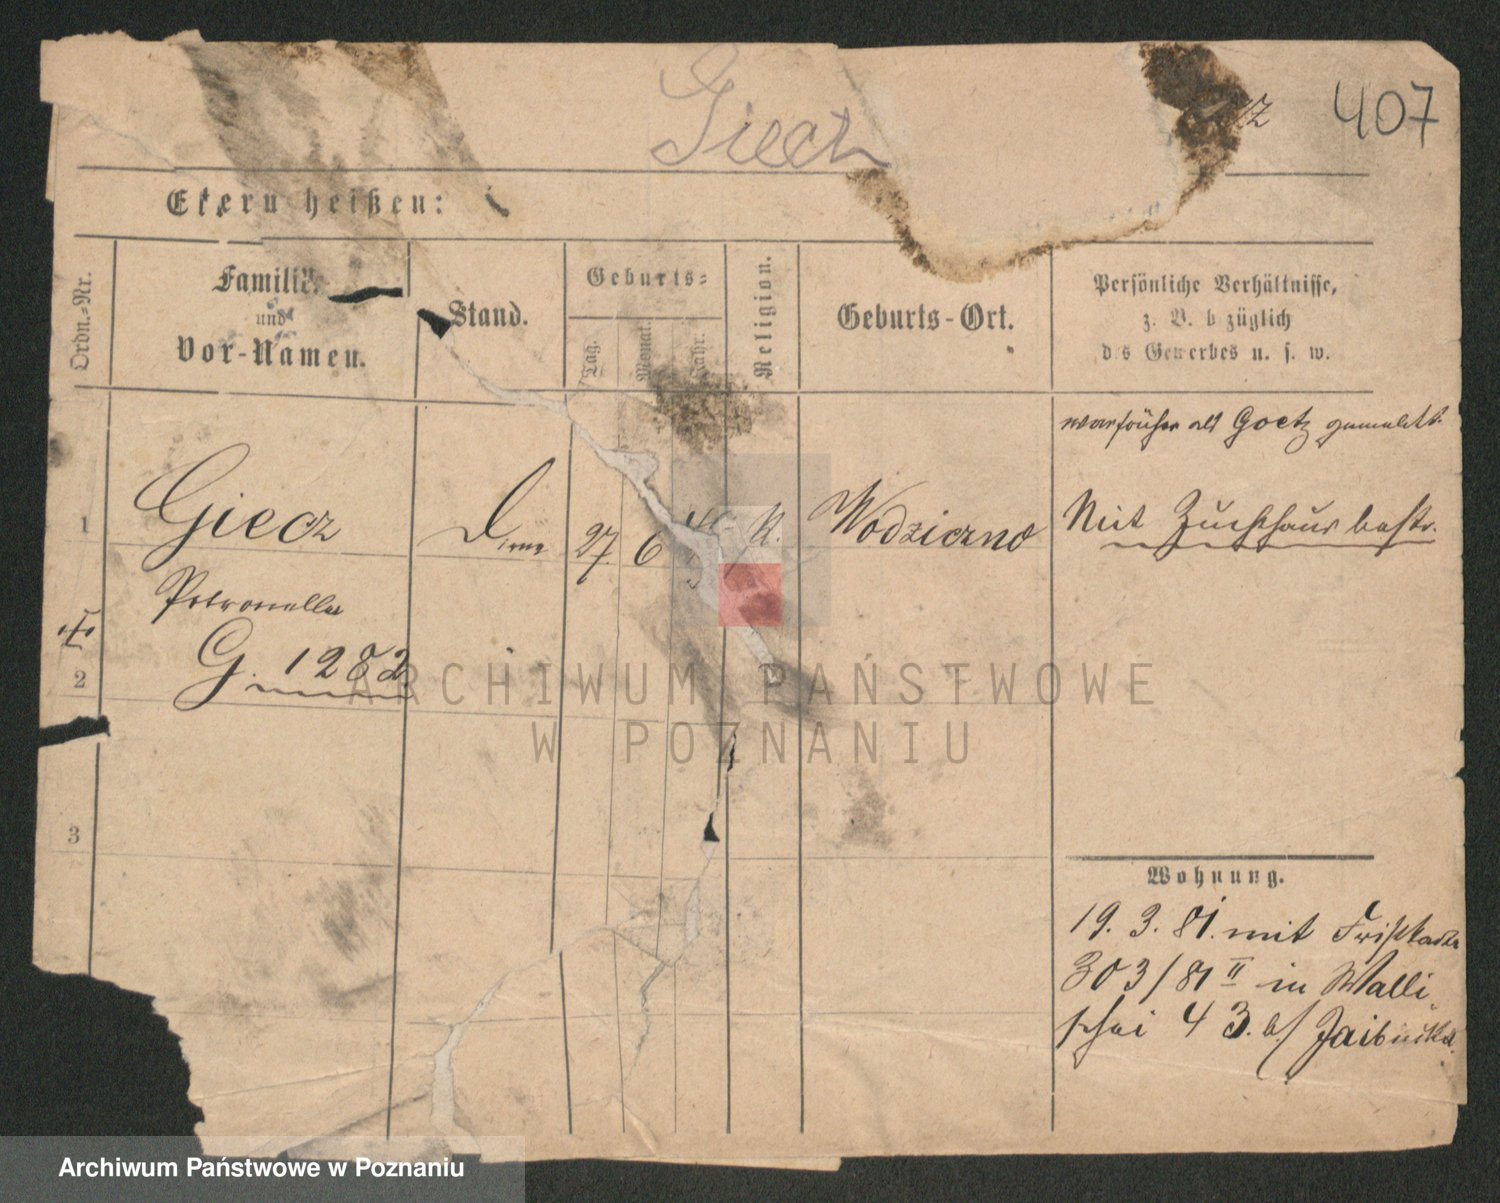 Giecz
407
Eltern heißen:
Ordn.-Nr.
Familien-
und
Vor-Namen.
Stand.
Geburts-
Tag.
Monat.
Jahr.
Religion.
Geburts-Ort.
Persönliche Verhältnisse,
z. B. bezüglich
des Gewerbes u. s. w.
war früher als Goetz gemeldet.
1
Giecz
Dirne
27.
6
K.
Wodziczno
Mit Zuchthaus bestr.
Petronella
G. 1282
2
3
Wohnung.
19. 3. 81. mit
303/81 II in Walli
schei 43. b/
ARCHIWUM PAŃSTWOWE
W POZNANIU
Archiwum Państwowe w Poznaniu